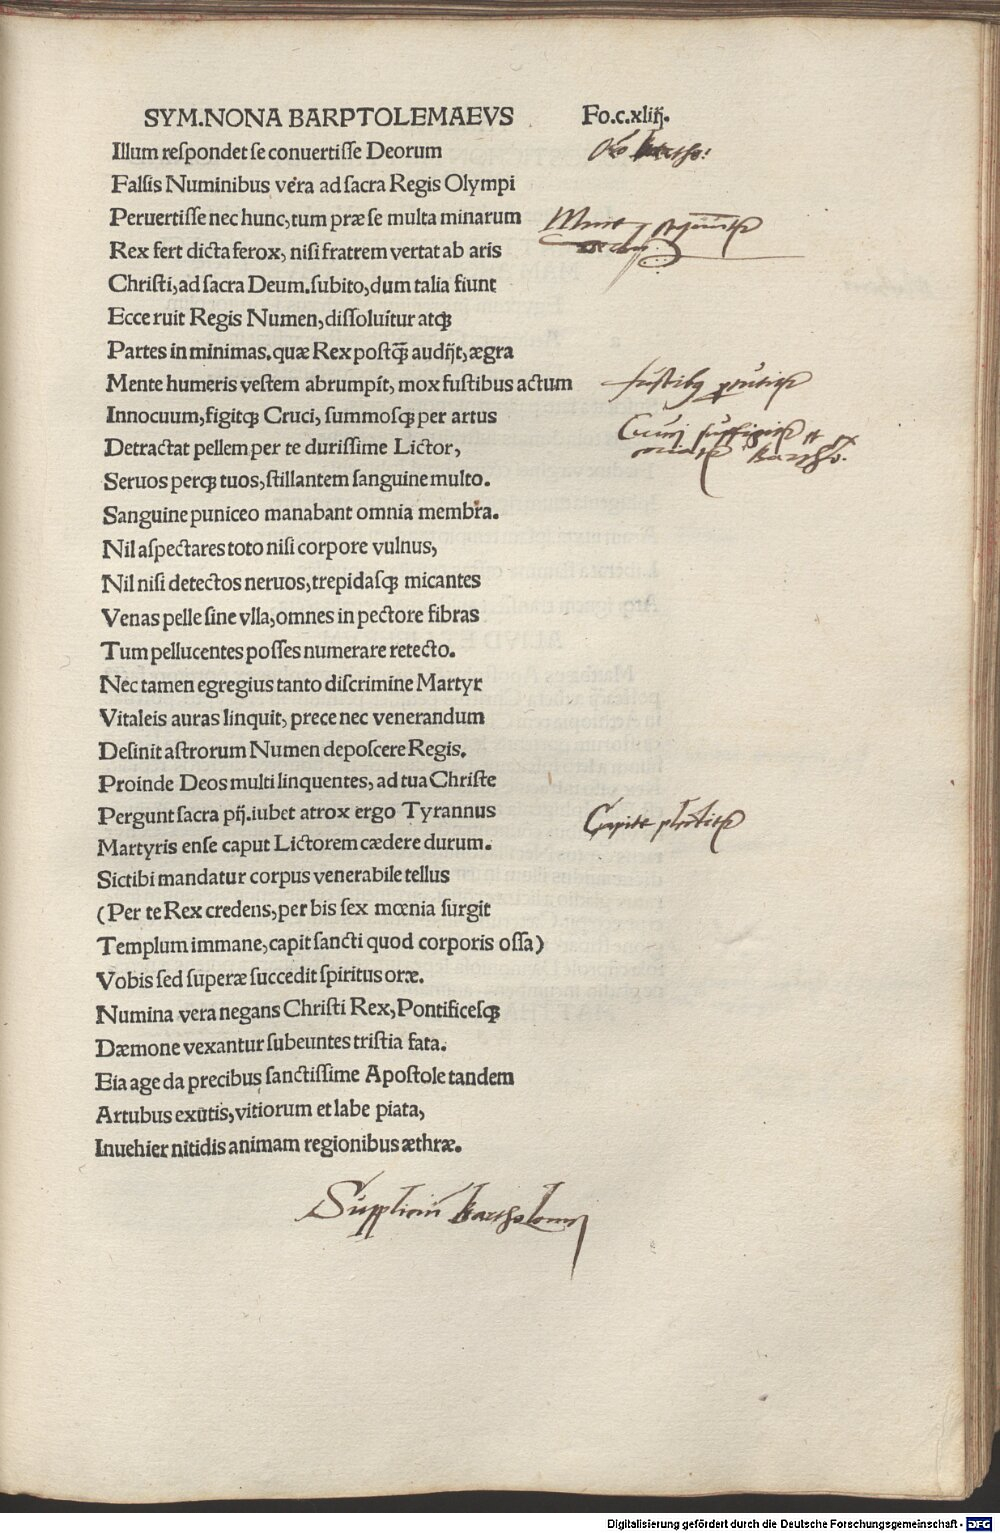 SYM.NONA BARPTOLEMAEVS Fo.c.xliiȷ.
Illum respondet se conuertisse Deorum
Falsis Numinibus vera ad sacra Regis Olympi
Peruertisse nec hunc, tum præ se multa minarum
Rex fert dicta ferox, nisi fratrem vertat ab aris
Christi, ad sacra Deum. subito, dum talia fiunt
Ecce ruit Regis Numen, dissoluitur atqꝫ
Partes in minimas. quæ Rex postqȝ̄ audijt, ægra
Mente humeris vestem abrumpit, mox fustibus actum
fustibꝰ
Innocuum, figitqꝫ Cruci, summosqꝫ per artus
Detractat pellem per te durissime Lictor,
Seruos perqꝫ tuos, stillantem sanguine multo.
Sanguine puniceo manabant omnia membra.
Nil aspectares toto nisi corpore vulnus,
Nil nisi detectos neruos, trepidasqꝫ micantes
Venas pelle sine vlla, omnes in pectore fibras
Tum pellucentes posses numerare retecto.
Nec tamen egregius tanto discrimine Martyr
Vitaleis auras linquit, prece nec venerandum
Desinit astrorum Numen deposcere Regis.
Proinde Deos multi linquentes, ad tua Christe
Pergunt sacra pij. iubet atrox ergo Tyrannus
Capite plectitur
Martyris ense caput Lictorem cædere durum.
Sic tibi mandatur corpus venerabile tellus
(Per te Rex credens, per bis sex mœnia surgit
Templum immane, capit sancti quod corporis ossa)
Vobis sed superæ succedit spiritus oræ.
Numina vera negans Christi Rex, Pontificesqꝫ
Dæmone vexantur subeuntes tristia fata.
Eia age da precibus sanctissime Apostole tandem
Artubus exutis, vitiorum et labe piata,
Inuehier nitidis animam regionibus æthræ.
Suppliciū Bartholomej
Digitalisierung gefördert durch die Deutsche Forschungsgemeinschaft - DFG